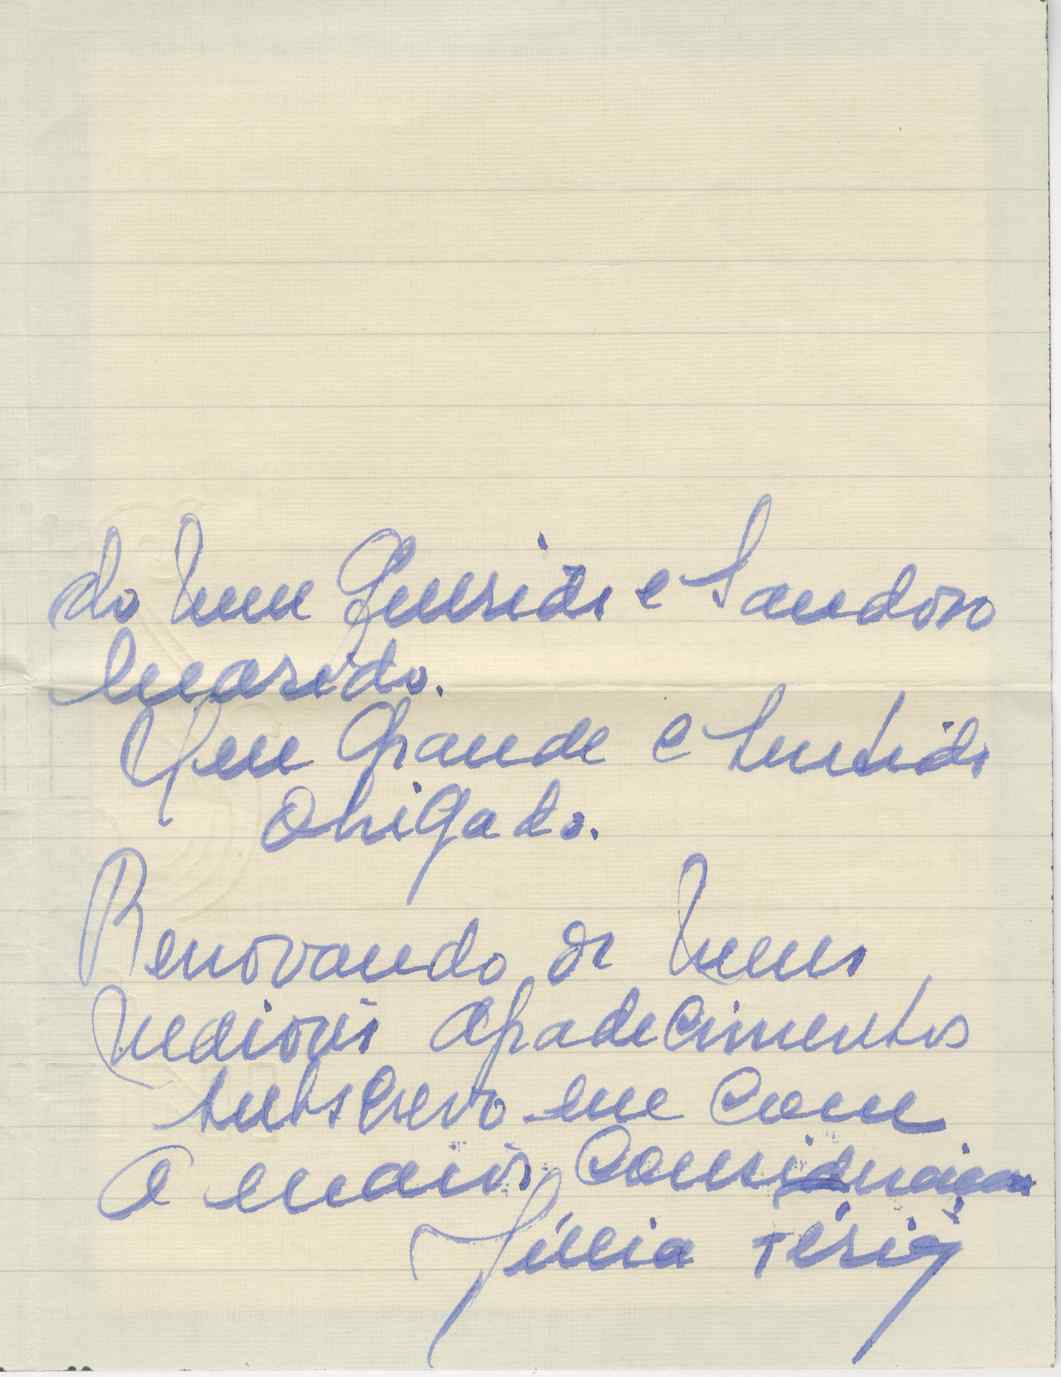 do meu Querido e Saudoso
marido.
Um Grande e sentido
Obrigado.
Renovando os meus
maiores agradecimentos
subscrevo me com
a maior Consideração